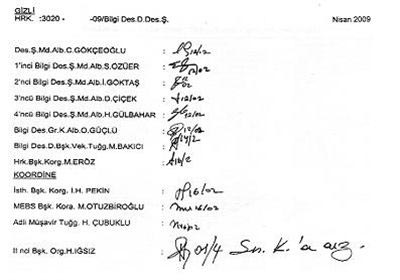 GİZLİ
HRK. :3020- -09/Bilgi Des.D.Des.Ş. Nisan 2009
Des.Ş.Md.Alb.C.GÖKÇEOĞLU : 12/02
1'inci Bilgi Des.Ş.Md.Alb.S.ÖZÜER : 12/02
2'nci Bilgi Des.Ş.Md.Alb.İ.GÖKTAŞ :
3'ncü Bilgi Des.Ş.Md.Alb.D.ÇİÇEK : 12/02
4'ncü Bilgi Des.Ş.Md.Alb.H.GÜLBAHAR : 12/02
Bilgi Des.Gr.K.Alb.O.GÜÇLÜ : 12/02
Bilgi Des.D.Bşk.Vek.Tuğg.M.BAKICI :
Hrk.Bşk.Korg.M.ERÖZ :
KOORDİNE
İsth. Bşk. Korg. İ.H. PEKİN : 16/02
MEBS Bşk. Korg. M.OTUZBİROĞLU : 16/02
Adli Müşavir Tuğg. H. ÇUBUKLU :
II nci Bşk. Org.H.IĞSIZ : 01/4 Sn. K.'a arz.